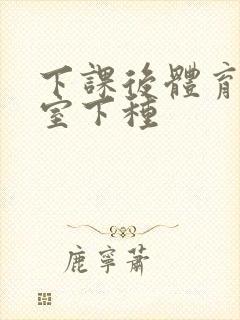 下課後體育
室下種
鹿寧蕭